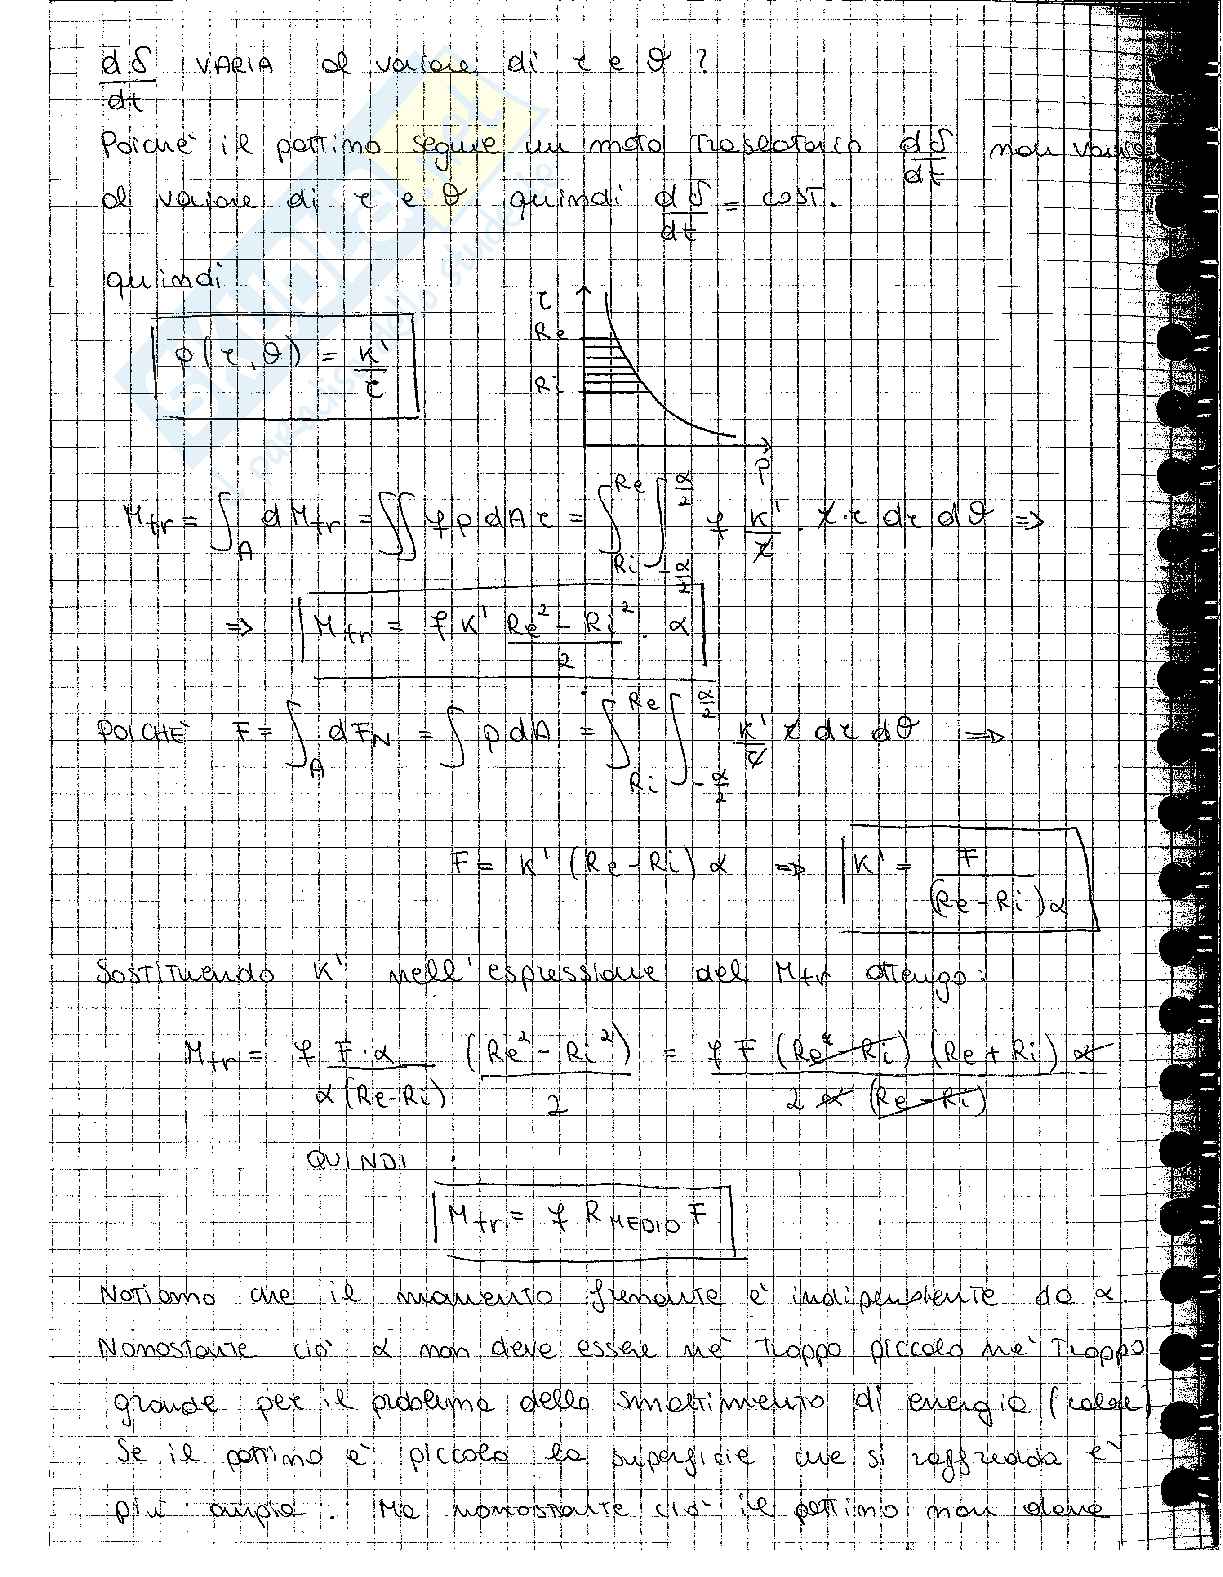 dδ/dt VARIA al variare di r e θ ?
Poiché il pattino segue un moto traslatorio dδ/dt non varia
al variare di r e θ quindi dδ/dt = cost.
quindi
p(r,θ) = K'/r
r
Re
Ri
p
Mfr = ∫_A dMfr = ∬ f p dA r = ∫_Ri^Re ∫_-α/2^α/2 f K'/r · r · r dr dθ ⇒
⇒ Mfr = f K' (Re² - Ri²)/2 · α
POICHÈ F = ∫_A dFN = ∫ p dA = ∫_Ri^Re ∫_-α/2^α/2 K'/r r dr dθ ⇒
F = K' (Re - Ri) α ⇒ K' = F/((Re - Ri) α)
Sostituendo K' nell'espressione del Mfr ottengo:
Mfr = f F·α/(α (Re-Ri)) (Re² - Ri²)/2 = f F (Re - Ri) (Re + Ri) α/(2 α (Re - Ri))
QUINDI :
Mfr = f R MEDIO F
Notiamo che il momento frenante è indipendente da α
Nonostante ciò α non deve essere né troppo piccolo né troppo
grande per il problema dello smaltimento di energia (calore)
Se il pattino è piccolo la superficie che si raffredda è
più ampia. Ma nonostante ciò il pattino non deve